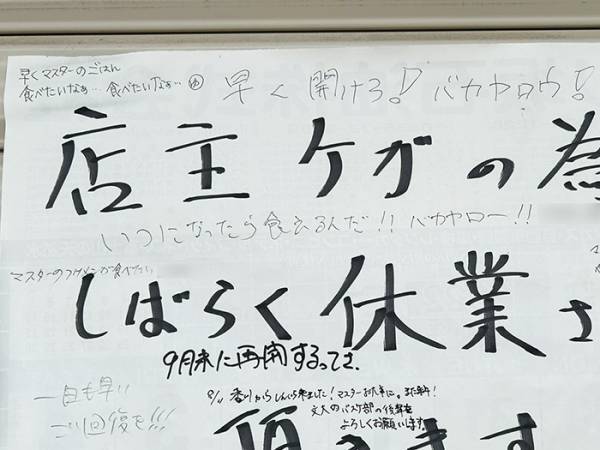 早くマスターのごはん
食べたいなぁ… 食べたいなぁ…
早く開けろ! バカヤロウ!
店主ケガの為
いつになったら食えるんだ!! バカヤロー!!
マスターのつけメンが食べたい
しばらく休業さ
9月末に再開するってさ。
一日も早い
ご回復を!!!
8/11 香川から 来ました! マスターお大事に。また来ます!
文大のバスケ部の後輩を
よろしくお願いします。
頂きます